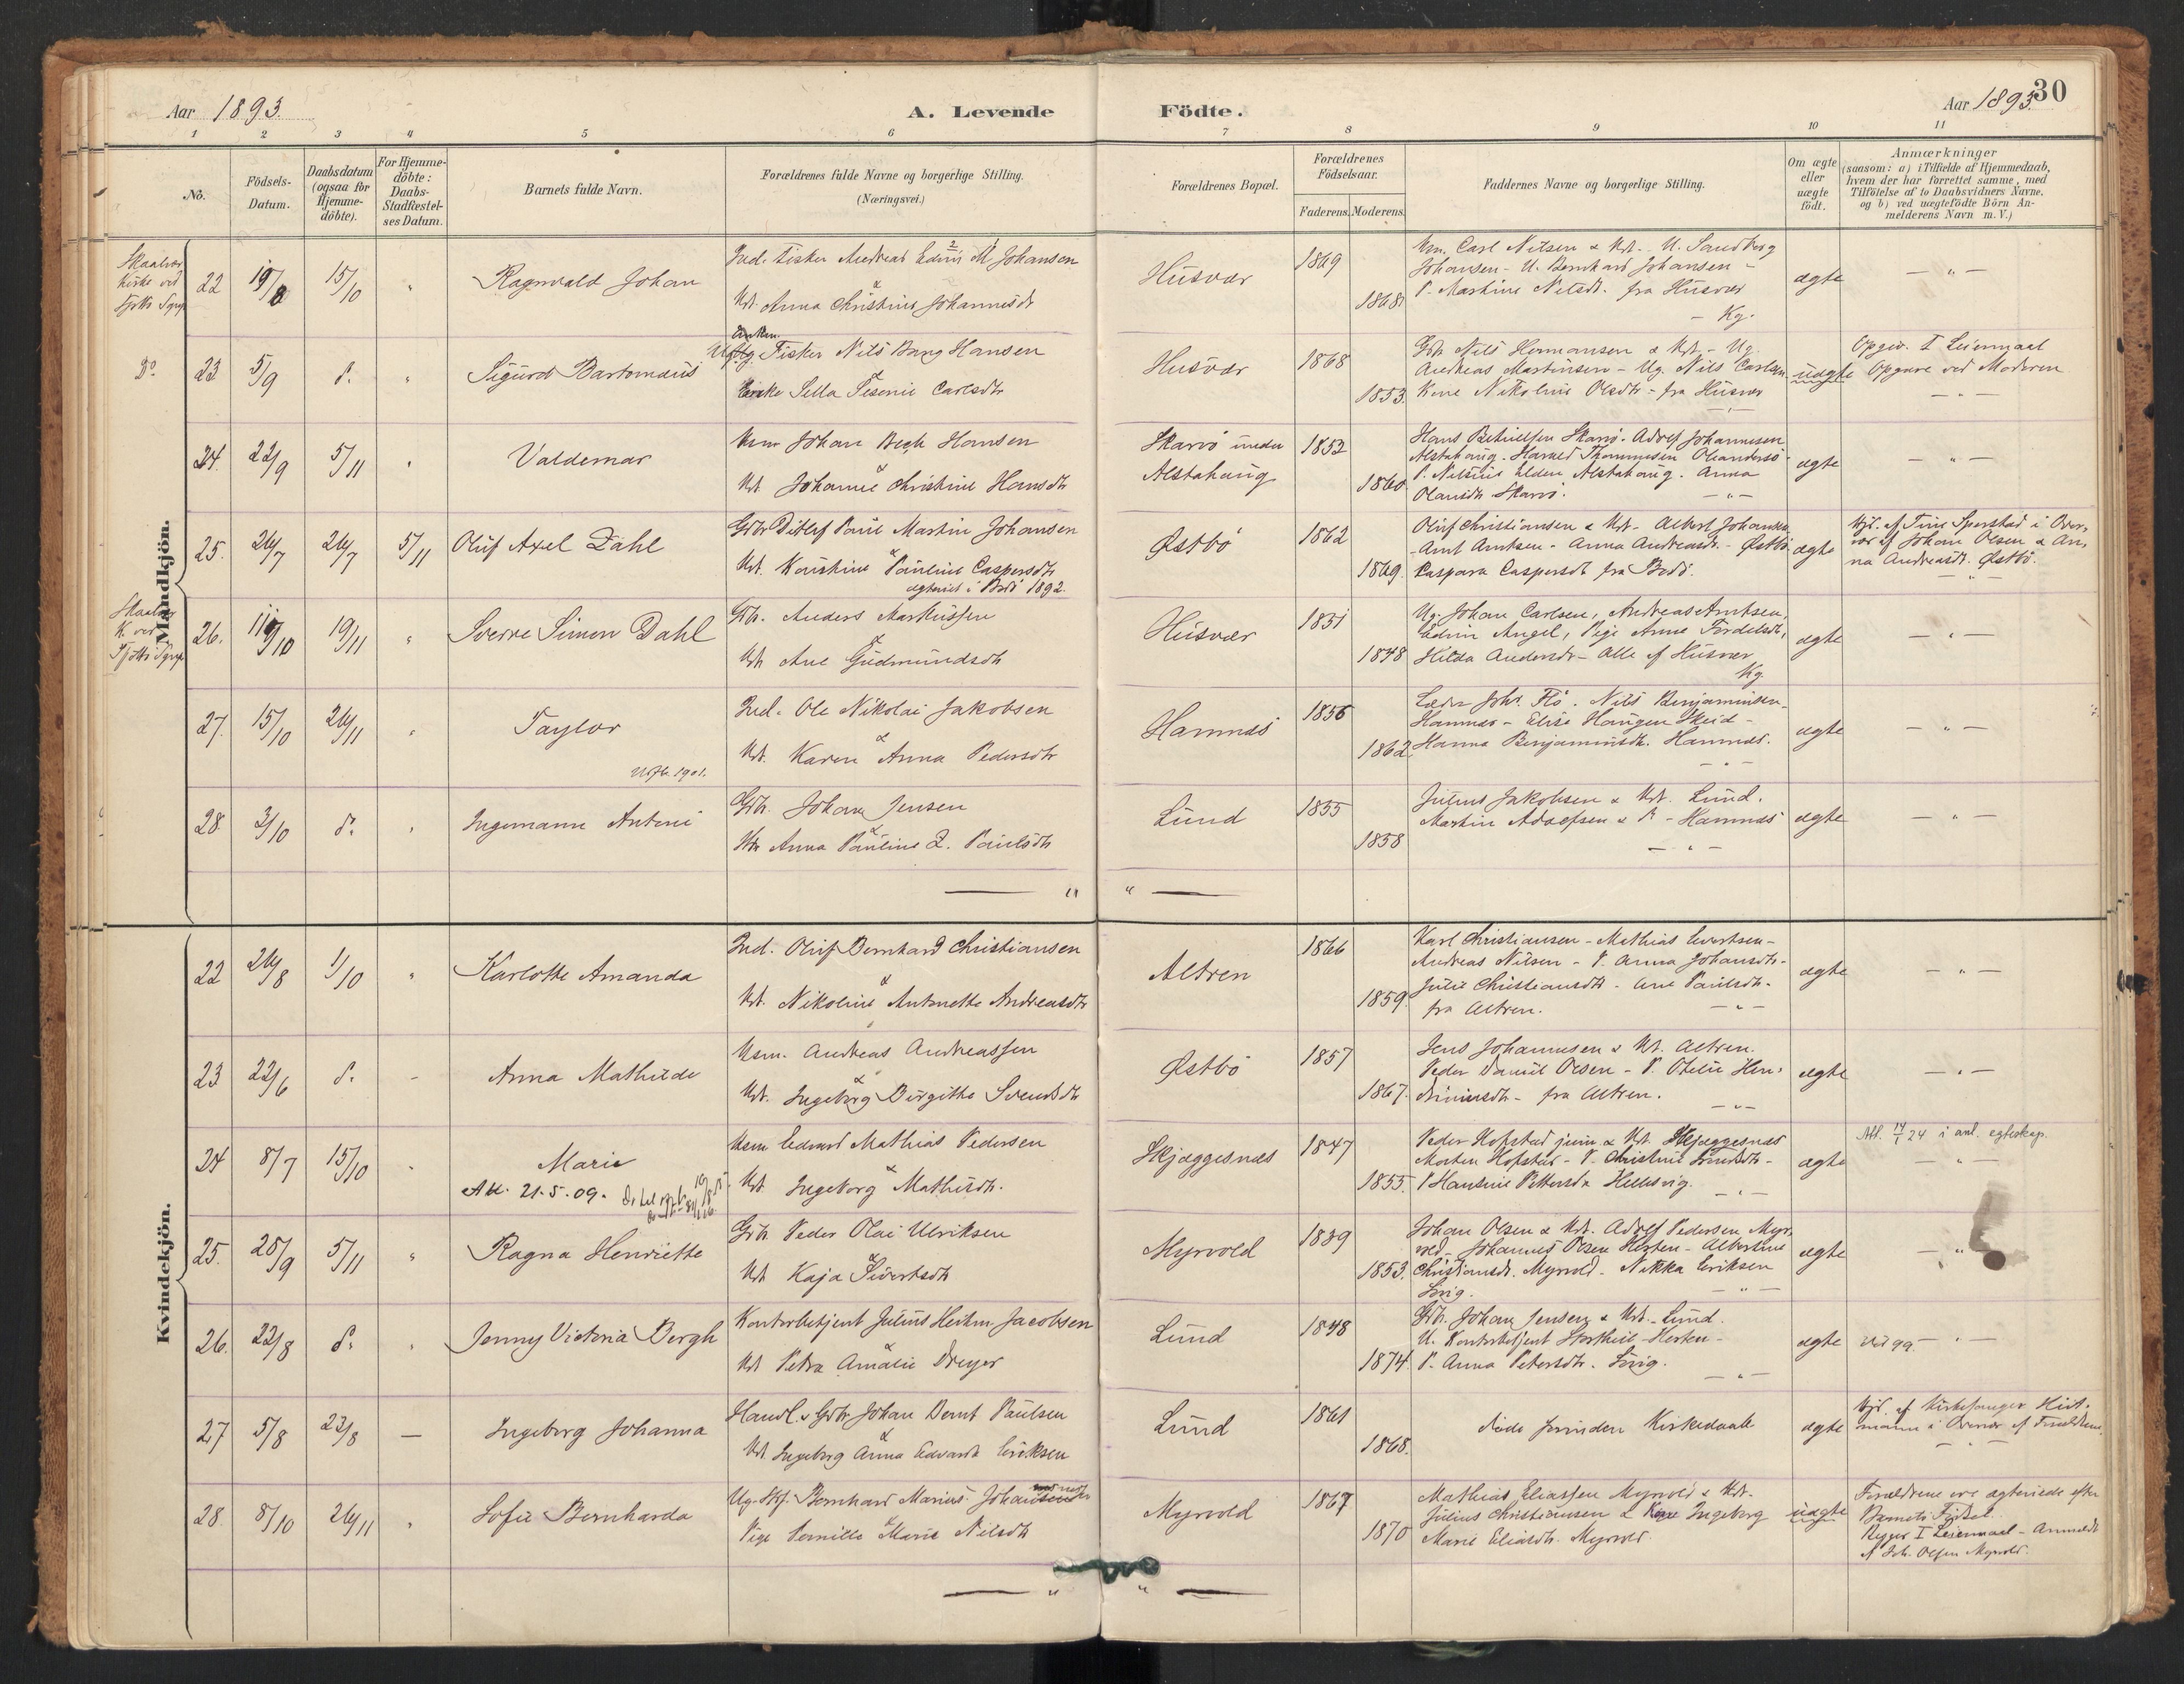 Aar 1893.
A. Levende Födte.
Aar 1893.
30
1 2 3 4 5 6 7 8 9 10 11
No.
Födsels-
Datum.
Daabsdatum
(ogsaa for
Hjemme-
döbte).
For Hjemme-
döbte:
Daabs-
Stadfæstel-
ses Datum.
Barnets fulde Navn.
Forældrenes fulde Navne og borgerlige Stilling.
(Næringsvei.)
Forældrenes Bopæl.
Forældrenes
Födselsaar.
Faderens. Moderens.
Faddernes Navne og borgerlige Stilling.
Om ægte
eller
uægte
födt.
Anmærkninger
(saasom: a) i Tilfælde af Hjemmedaab,
hvem der har forrettet samme, med
Tilföielse af to Daabsvidners Navne.
og b) ved uægtefödte Börn An-
melderens Navn m. V.)
Mandkjön.
Skaalvær
Kirke ved
22 19/8 15/10 " Ragnvald Johan
Ind. Fisker Andreas Edvin M. Johansen
&
Kst. Anna Christine Johannesdt
Husvær 1869 1868
Carl Nilsen & Kst. U. Sandberg
Johansen - U. Bernhard Johansen -
P. Martine Nilsdt. fra Husvær
- Kg.
ægte - " -
Do. 23 5/9 d. " Sigurd Bartomæus
Enkem.
Fisker Nils Bang Hansen
&
Enke Sella Carlsdtr
Husvær 1868 1853.
Gbr. Nils Hermansen & Kst. - Ug.
Andreas Martinsen - Ug. Nils Carlsen
Kone Nikoline Olsdtr - fra Husvær
uægte
Opgiv. I Leiermaal
Opgave ved Moderen
24. 22/9 5/11 " Valdemar
Johan Bech Hansen
&
Kst. Johanne Christine Hansdtr
Skarvö under
Alstahaug
1853 1860
Hans Skarvö. Adolf Johannesen
Alstahaug. Harald Thommesen
P. Alstahaug. Anna
Skarvö. - " -
ægte - " -
25. 26/7 26/7 5/11 Oluf Axel Dahl
Gbr Ditlef Paul Martin Johansen
&
Kst. Kanstine Pauline Caspersdtr
ægteviet i Bodö 1892.
Østbö 1862 1869.
Oluf Christiansen & Kst. - Albert Johansen
Arnt Arntsen - Anna Andreasdt. - Østbö
Caspara Caspersdt fra Bodö.
ægte
Hjd. af Sperstad i
af Johan Olsen & An-
na Andreasdt. Østbö.
26. 11/10 19/11 " Sverre Simon Dahl
Gbr. Anders Markussen
&
Kst. Ane Gudmundsdtr
Husvær 1851 1848
Ug. Johan Carlsen, Andreas Arntsen,
Edvin Angel, Pige Anne
Hilda Andersdt - Alle af Husvær
Kg.
ægte - " -
27. 15/10 26/11 " Taylor
Ind. Ole Nikolai Jakobsen
&
Kst. Karen Anna Pedersdtr
Hamnæs 1856 1862
Joh. Flö. Nils Benjaminsen
Hamnæs - Elise Haugen Skeid -
Hanna Benjaminsdt. Hamnæs.
ægte - " -
1901.
28. 3/10 d. " Ingemann Antoni
Gbr. Johan Jensen
&
Kst. Anna Pauline Z. Paulsdtr
Lund 1855 1858
Julius Jakobsen & Kst. Lund.
Martin Adolfsen & K - Hamnæs
ægte - " -
Kvindekjön.
22 26/8 1/10 " Karlotte Amanda
Ind. Oluf Bernhard Christiansen
&
Kst. Nikoline Antonette Andreasdtr
Altren 1866 1859.
Karl Christiansen - Mathias Evertsen -
Andreas Nilsen - P. Anna Johansdtr -
Julie Christiansdtr - Ane Paulsdtr -
fra Altren. - " -
ægte - " -
23 22/6 d. - Anna Mathilde
Husm. Andreas Andreassen
&
Kst. Ingeborg Birgitha Svendsdtr
Østbö 1857 1867.
Jens Johannesen & Kst. Altren.
Peder Daniel Olsen - P. Otelie Hen-
driiksdtr - fra Altren. - " -
ægte - " -
24 8/7 15/10 " Marie
Att. 21.5.09.
Husm Edvard Mathias Pedersen
&
Kst Ingeborg Mathisdtr.
Skjæggesnæs 1847 1855.
Peder Hofstad jun. & Kst. Skjæggesnæs
Morten Hofstad - P. Christine
P Hansine Pettersdtr Hellesvig. - " -
ægte
Att. 14/1 24 i anl. egteskap.
- " -
25. 25/9 5/11 " Ragna Henriette
Gbr Peder Olai Ulriksen
&
Kst Kaja Sivertsdtr
Myrvold 1849 1853.
Johan Olsen & Kst. Adolf Pedersen Myr-
vold - Johannes Olsen Horten - Albertine
Christiansdt. Myrvold. Nikka Eriksen
ægte - " -
26. 22/8 d. " Jenny Victoria Bergh
Kontorbetjent Julius Heitm. Jacobsen
&
Kst Petra Amalie Dreyer
Lund 1848 1874.
Gbr. Johan Jensen & Kst. Lund.
U. Kontorbetjent Horten -
P. Anna Petersdtr.
ægte - " -
27 5/8 23/8 - Ingeborg Johanna
Handl. & Gbr Johan Bernt Paulsen
&
Kst. Ingeborg Anna Edvarda Eriksen
Lund 1861 1868.
döde forinden Kirkedaab
ægte
Hjd. af Kirkesanger Heit-
mann i af Forældrene
28. 8/10 26/11 " Sofie Bernharda
Ug. Bernhard Marius Johansen
&
Pige Pernille Marie Nilsdtr
Myrvold 1867 1870
Mathias Eliassen Myrvold & Kst.
Julius Christiansen & Kone Ingeborg
Marie Eliasdtr. Myrvold.
uægte
Forældrene ere ægteviede efter
Barnets Födsel.
Begges I Leiermaal - Anmeldt
af Joh. Olsen Myrvold.